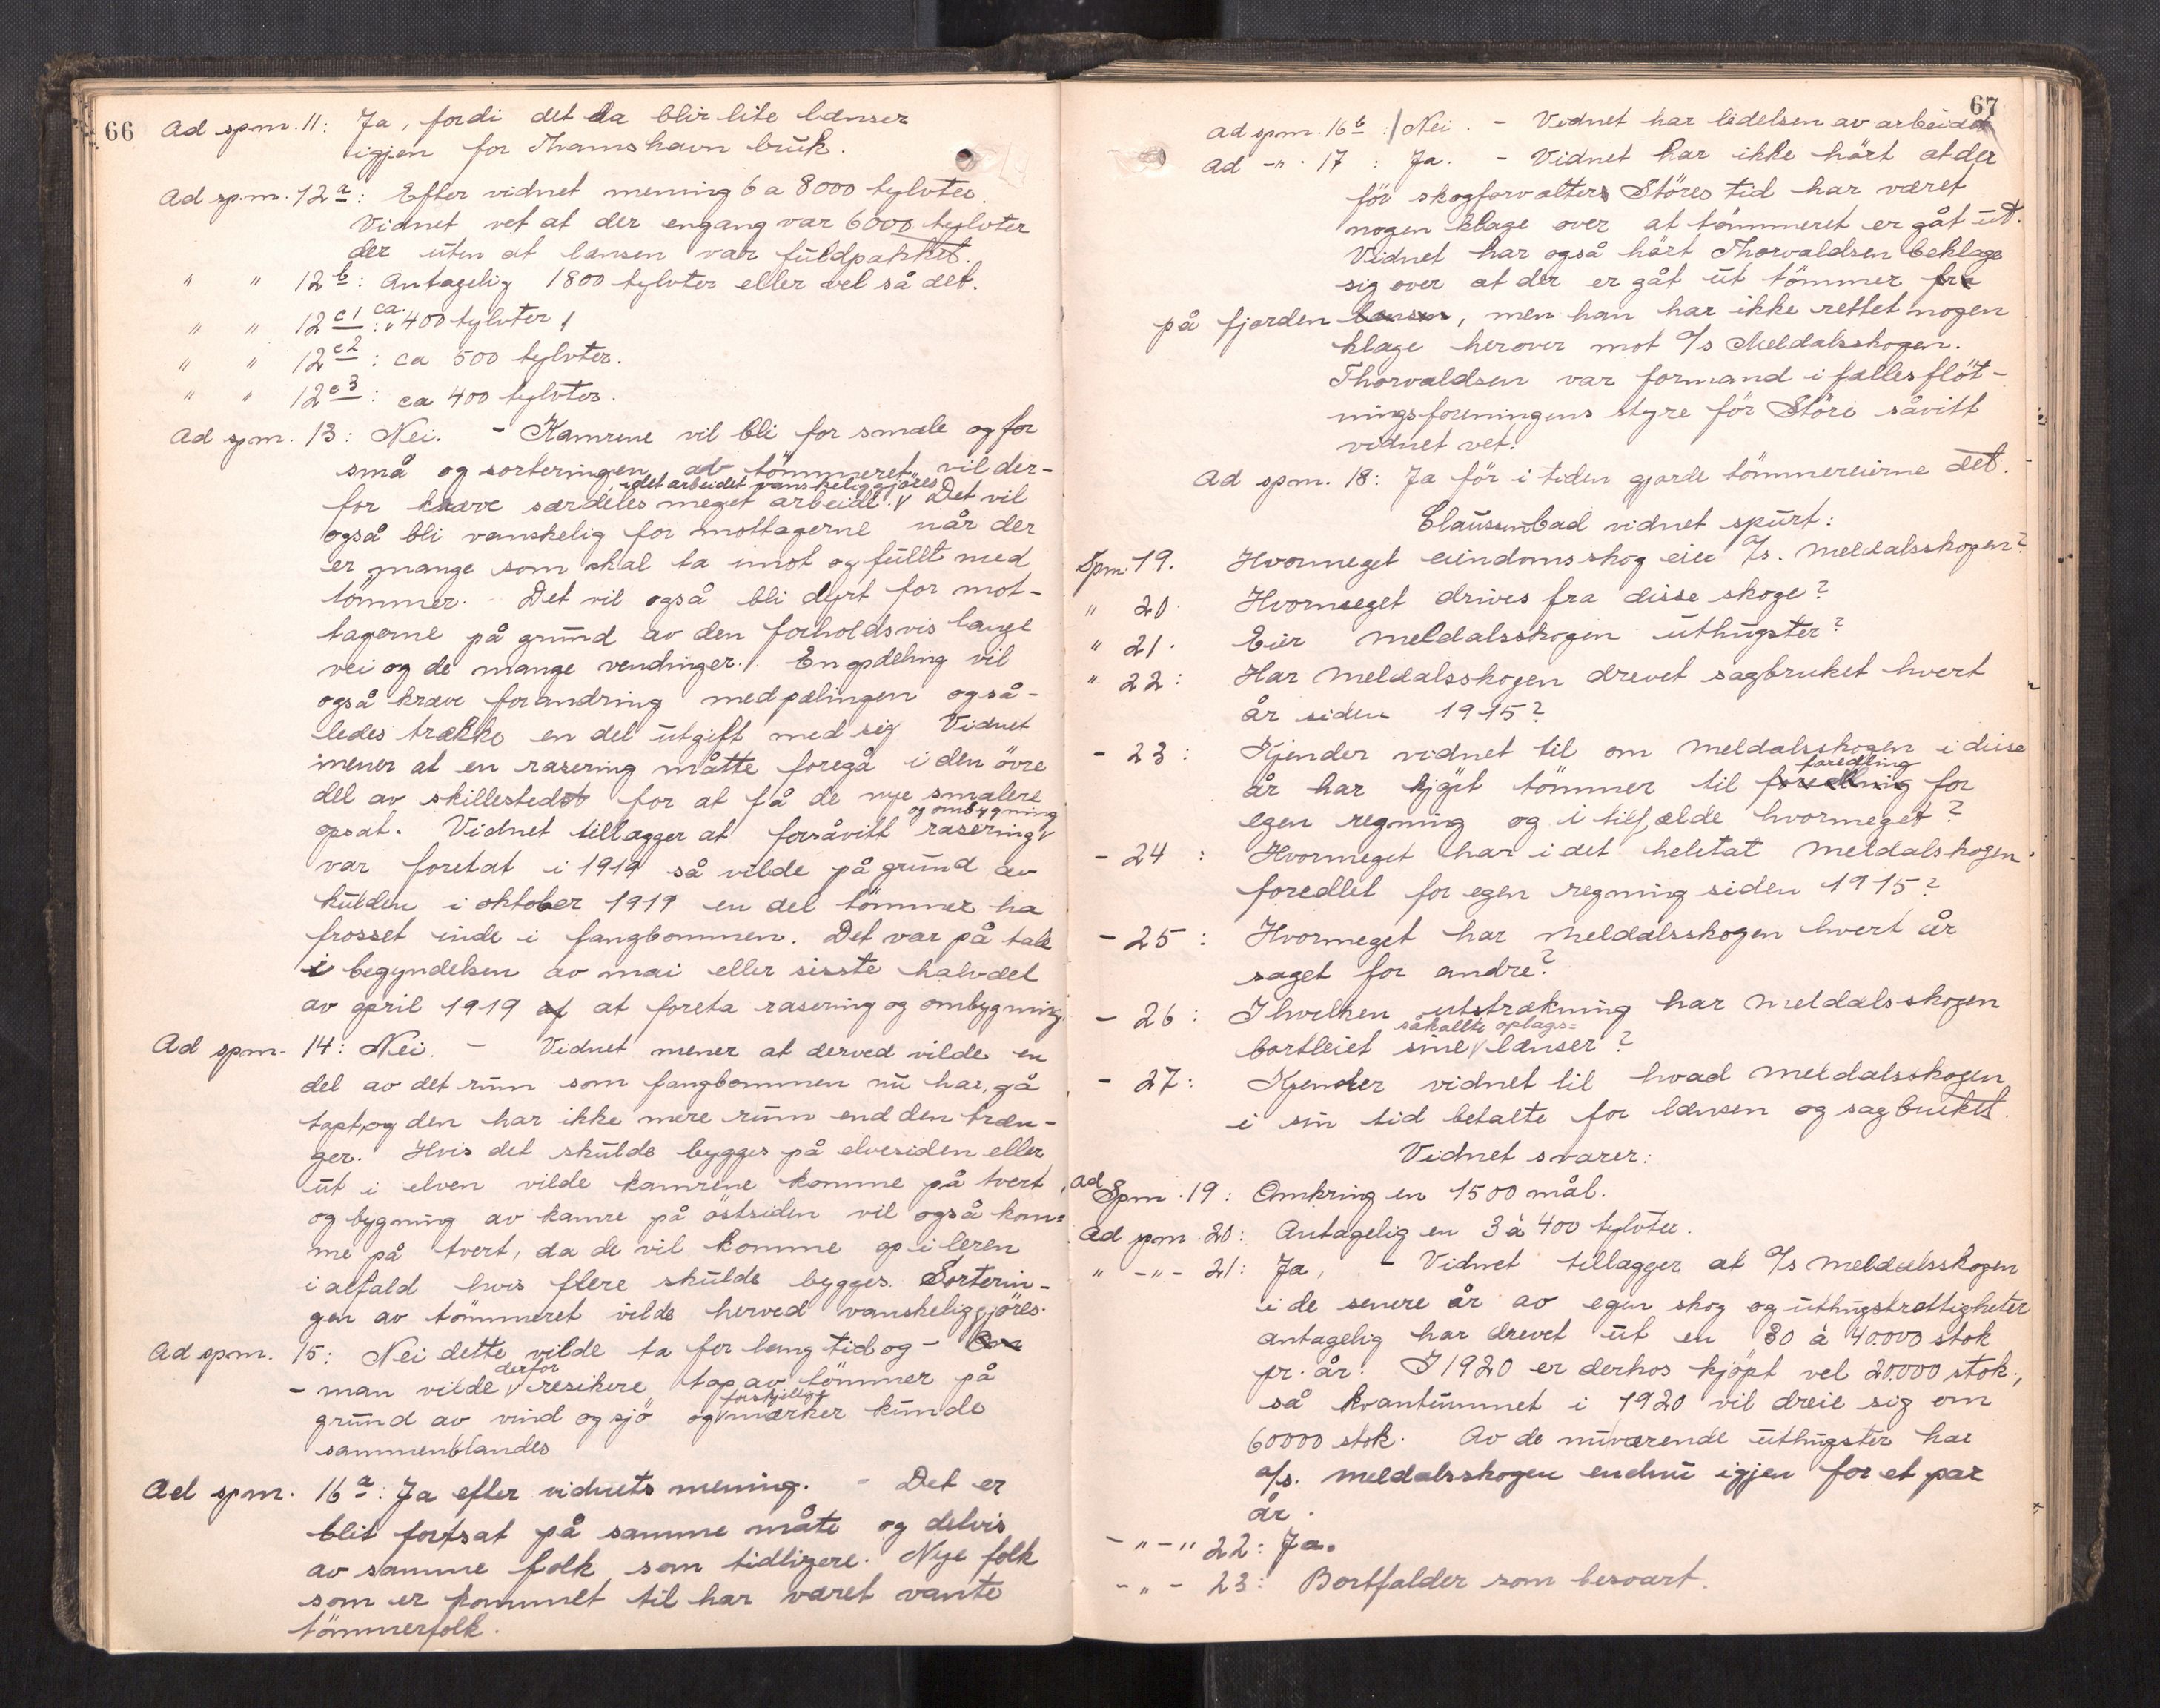 66
Ad spm. 11: Ja, fordi det da blir lite lænser
igjen for Thamshavn bruk.
Ad spm. 12a: Efter vidnet mening 6 a 8000 tylvter.
Vidnet vet at der engang var 6000 tylvter
der uten at lænsen var fuldpakket.
" " 12b: Antagelig 1800 tylvter eller vel så det.
" " 12c1: ca. 400 tylvter,
" " 12c2: ca 500 tylvter.
" " 12c3: ca 400 tylvter.
Ad spm. 13: Nei. - Kamrene vil bli for smale og for
små og sorteringen av tømmeret vil der-
, idet arbeidet vanskeliggjöres
for kræve særdeles meget arbeide. v Det vil
også bli vanskelig for mottagerne når der
er mange som skal ta imot og fullt med
tömmer. Det vil også bli dyrt for mot-
tagerne på grund av den forholdsvis lange
vei og de mange vendinger. En opdeling vil
også kræve forandring med pælingen og så-
ledes trække en del utgift med sig Vidnet
mener at en rasering måtte foregå i den övre
del av skillestedet for at få de nye smalere
og ombygning
opsat. Vidnet tillægger at forsåvitt rasering v
var foretat i 1919 så vilde på grund av
kulden i oktober 1919 en del tömmer ha
frosset inde i fangbommen. Det var på tale
i begyndelsen av mai eller sisste halvdel
av april 1919 at foreta rasering og ombygning.
Ad spm. 14: Nei. - Vidnet mener at derved vilde en
del av det rum som fangbommen nu har, gå
tapt, og den har ikke mere rum end den træn-
ger. Hvis det skulde bygges på elvesiden eller
ut i elven vilde kamrene komme på tvert,
og bygning av kamre på östsiden vil også kom=
me på tvert, da de vil komme op i leren
i alfald hvis flere skulde bygges. Sorterin-
gen av tömmeret vilde herved vanskeliggjöres.
Ad spm. 15: Nei dette vilde ta for lang tid og -
derfor
- man vilde v resikere tap av tömmer på
forskjellige
grund av vind og sjö og v mærker kunde
sammenblandes
Ad spm. 16a: Ja efter vidnets mening. - Det er
blit fortsat på samme måte og delvis
av samme folk som tidligere. Nye folk
som er kommet til har været vante
tömmerfolk.
67
Ad spm. 16b: Nei. - Vidnet har ledelsen av arbeidet
Ad -"- 17: Ja. - Vidnet har ikke hört at der
för skogforvalters Störes tid har været
nogen klage over at tömmeret er gåt ut.
Vidnet har også hört Thorvaldsen beklage
sig over at der er gåt ut tömmer fra
på fjorden lænsen, men han har ikke rettet nogen
klage herover mot A/s Meldalsskogen.
Thorvaldsen var formand i fællesflöt-
ningsforeningens styre för Störe såvitt
vidnet vet.
Ad spm. 18: Ja för i tiden gjorde tömmereierne det.
Claussen bad vidnet spurt:
Spm. 19. Hvormeget eiendomsskog eier A/s. Meldalsskogen?
" 20. Hvormeget drives fra disse skoge?
" 21. Eier Meldalsskogen uthugster?
" 22: Har Meldalsskogen drevet sagbruket hvert
år siden 1915?
- 23: Kjender vidnet til om Meldalsskogen i disse
foredling
år har kjöpt tömmer til foredling for
egen regning og i tilfælde hvormeget?
- 24: Hvormeget har i det heletat Meldalskogen
foredlet for egen regning siden 1915?
- 25: Hvormeget har Meldalsskogen hvert år
saget for andre?
- 26: I hvilken utstrækning har Meldalsskogen
såkallte oplags=
bortleiet sine v lænser?
- 27: Kjender vidnet til hvad Meldalsskogen
i sin tid betalte for lænsen og sagbruket.
Vidnet svarer:
Ad Spm. 19: Omkring en 1500 mål.
Ad spm. 20: Antagelig en 3 à 400 tylvter.
" -"- 21: Ja, - Vidnet tillægger at A/s Meldalsskogen
i de senere år av egen skog og uthugstrettigheter
antagelig har drevet ut en 30 à 40.000 stok
pr. år. I 1920 er derhos kjöpt vel 20.000 stok.,
så kvantummet i 1920 vil dreie sig om
60000 stok. Av de nuværende uthugster har
A/s. Meldalsskogen endnu igjen for et par
år.
-"-" 22: Ja.
-"- 23: Bortfalder som besvart.